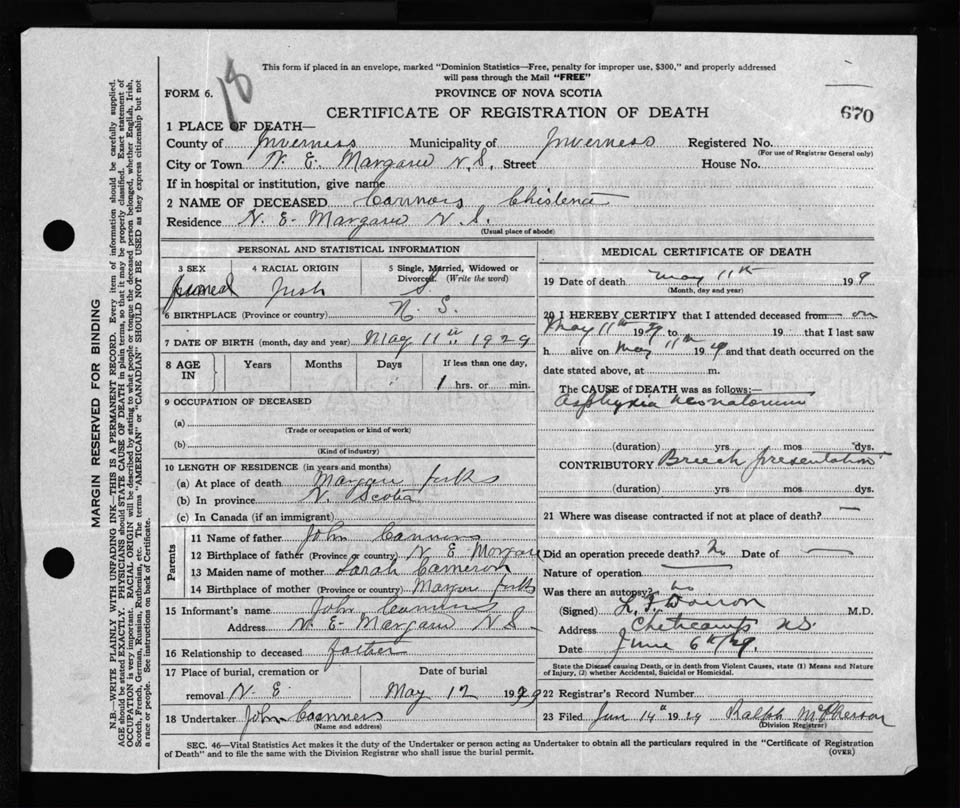 18
This form if placed in an envelope, marked "Dominion Statistics—Free, penalty for improper use, $300," and properly addressed
will pass through the Mail "FREE"
FORM 6.
PROVINCE OF NOVA SCOTIA
CERTIFICATE OF REGISTRATION OF DEATH
670
1 PLACE OF DEATH—
County of Inverness Municipality of Inverness Registered No.
(For use of Registrar General only)
City or Town N. E. Margaree N.S. Street House No.
If in hospital or institution, give name
2 NAME OF DECEASED Connors
Residence N. E. Margaree N.S.
(Usual place of abode)
PERSONAL AND STATISTICAL INFORMATION
3 SEX 4 RACIAL ORIGIN 5 Single, Married, Widowed or
Divorced (Write the word)
Irish S.
6 BIRTHPLACE (Province or country) N. S.
7 DATE OF BIRTH (month, day and year) May 11th 1929
8 AGE IN Years Months Days If less than one day,
1 hrs. or min.
9 OCCUPATION OF DECEASED
(a)
(Trade or occupation or kind of work)
(b)
(Kind of industry)
10 LENGTH OF RESIDENCE (in years and months)
(a) At place of death Margaree forks
(b) In province N. Scotia
(c) In Canada (if an immigrant)
Parents
11 Name of father John Connors
12 Birthplace of father (Province or country) N E Margaree
13 Maiden name of mother Sarah Cameron
14 Birthplace of mother (Province or country) Margaree forks
15 Informant's name John Connors
Address N. E- Margaree N S-
16 Relationship to deceased father
17 Place of burial, cremation or Date of burial
removal N. E May 12 1929
18 Undertaker John Connors
(Name and address)
MEDICAL CERTIFICATE OF DEATH
19 Date of death May 11th 19 9
(Month, day and year)
20 I HEREBY CERTIFY that I attended deceased from on
May 11th 1929 to 19 that I last saw
h alive on May 11th 1929 and that death occurred on the
date stated above, at m.
The CAUSE of DEATH was as follows:—
Asphyxia neonatorum
(duration) yrs mos dys.
CONTRIBUTORY Breech presentation
(duration) yrs mos dys.
21 Where was disease contracted if not at place of death? —
Did an operation precede death? No Date of —
Nature of operation —
Was there an autopsy? no
(Signed) L. J. Doiron M.D.
Address Cheticamp N.S.
Date June 6th/29.
State the Disease causing Death, or in death from Violent Causes, state (1) Means and Nature
of Injury, (2) whether Accidental, Suicidal or Homicidal.
22 Registrar's Record Number
23 Filed Jun 14th 1929 Ralph McPherson
(Division Registrar)
SEC. 46—Vital Statistics Act makes it the duty of the Undertaker or person acting as Undertaker to obtain all the particulars required in the "Certificate of Registration
of Death" and to file the same with the Division Registrar who shall issue the burial permit.
(OVER)
MARGIN RESERVED FOR BINDING
N.B.—WRITE PLAINLY WITH UNFADING INK—THIS IS A PERMANENT RECORD. Every item of information should be carefully supplied.
AGE should be stated EXACTLY. PHYSICIANS should STATE CAUSE OF DEATH in plain terms, so that it may be properly classified. Exact statement of
OCCUPATION is very important. RACIAL ORIGIN will be described by stating to what people or tongue the deceased person belonged, whether English, Irish,
Scotch, French, German, Russian, Ruthenian, etc. The terms "AMERICAN" or "CANADIAN" SHOULD NOT BE USED as they express citizenship but not
a race or people. See instructions on back of Certificate.